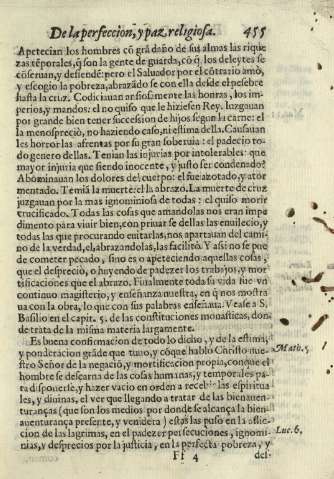 De la perfeccion, y paz religiosa. 455
Apetecian los hombres cõ grã daño de sus almas las rique
zas tẽporales, q̃ son la gente de guarda, cõ q̃ los deleytes se
cõseruan, y defiendẽ: pero el Saluador por el cõtrario amò,
y escogio la pobreza, abrazãdo se con ella desde el pesebre
hasta la cruz. Codiciauan ansiosamente las honras, los im-
perios, y mandos: el no quiso que le hiziesen Rey. Iuzgauan
por grande bien tener succession de hijos segun la carne: el
la menospreciò, no haziendo caso, ni estima della. Causauan
les horror las afrentas por su gran soberuia: el padecio to-
do genero dellas. Tenian las injurias por intolerables: que
mayor injuria que siendo inocente, y justo ser condenado?
Abominauan los dolores del cuerpo: el fue azotado, y ator
mentado. Temiã la muerte: el la abrazò. La muerte de cruz
juzgauan por la mas ignominiosa de todas: el quiso morir
crucificado. Todas las cosas que amandolas nos eran impe
dimento para viuir bien, con priuarse dellas las enuilecio, y
todas las que procurando euitarlas, nos apartauan del cami-
no de la verdad, el, abrazandolas, las facilitò. Y asi no se pue
de cometer pecado, sino es o apeteciendo aquellas cosas,
que el despreciò, o huyendo de padezer los trabajos, y mor
tificaciones que el abrazo. Finalmente toda su vida fue vn
continuo magisterio, y enseñanza nuestra, en q̃ nos mostra
ua con la obra, lo que con sus palabras enseñaua. Vease a S.
Basilio en el capit. 5. de las constituciones monasticas, don-
de trata de la misma materia largamente.
Es buena confirmacion de todo lo dicho, y de la estima,
y ponderacion grãde que tuuo, y cõque hablo Christo nue- Math. 5.
stro Señor de la negaciõ, y mortificacion propia, conque el
hombre se descarna de las cosas humanas, y temporales pa-
ra disponerse, y hazer vacio en orden a recebir las espiritua
les, y diuinas, el ver que llegando a tratar de las bienauen-
turanças (que son los medios por donde se alcança la bien-
auenturança presente, y venidera) estas las puso en la aflic-
cion de las lagrimas, en el padezer persecuciones, ignomi- Luc. 6.
nias, y desprecios por la justicia, en la perfecta pobreza, y
Ff 4 del-